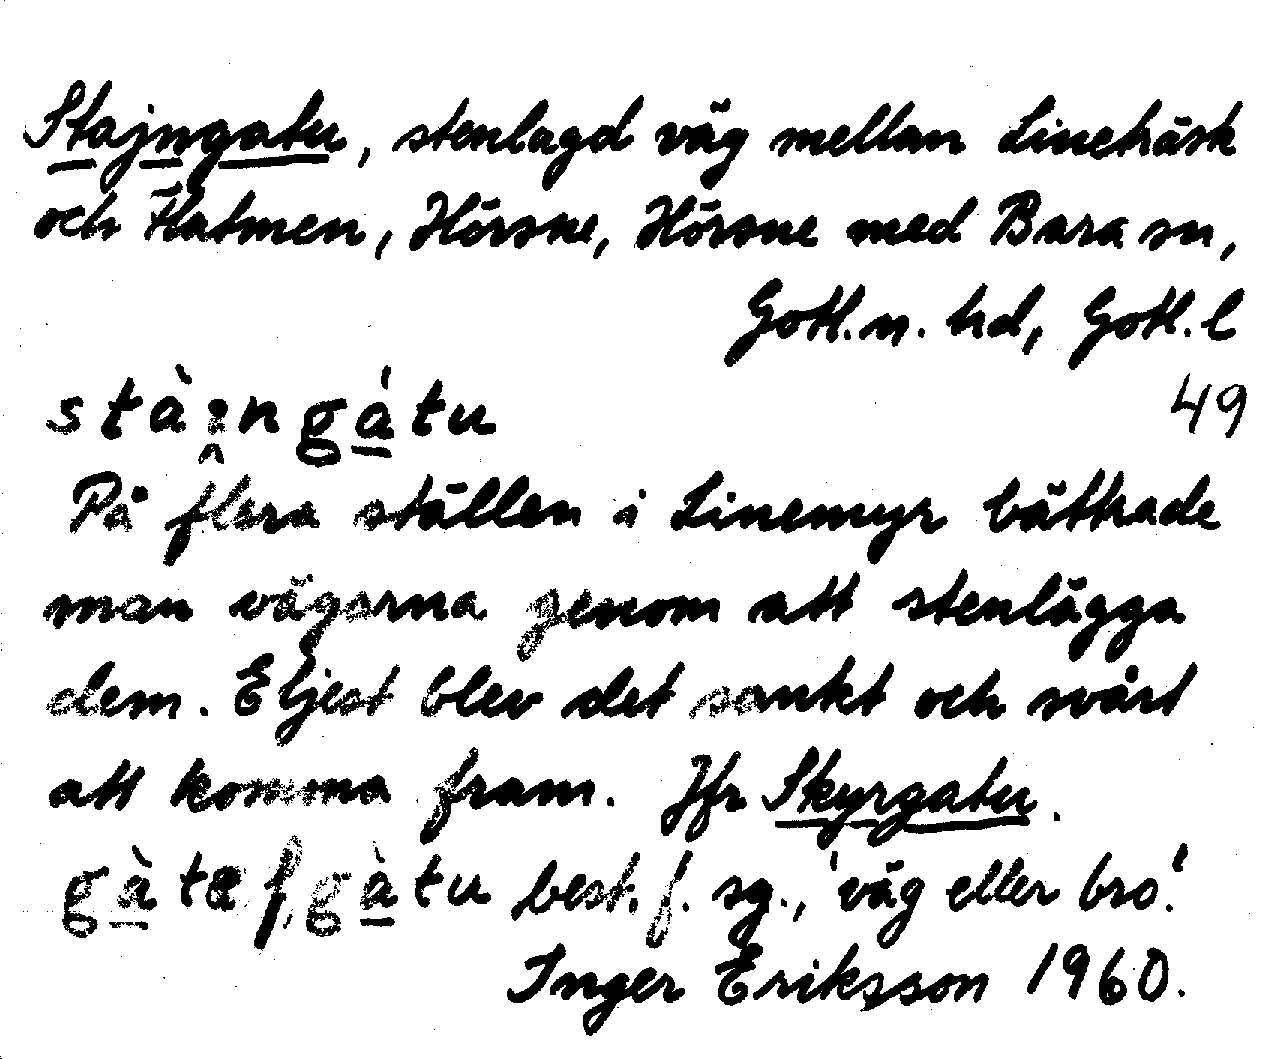 Stajngatu, stenlagd väg mellan Linehäsk
och Flatmen, Hörsne, Hörsne med Bara sn,
Gotl. n. hd, Gotl. l
49
På flera ställen i Linemyr bättrade
man vägarna genom att stenlägga
dem. Eljest blev det sankt och svårt
att komma fram. Jfr Skyrgatu.
best. f. sg., 'väg eller bro'.
Inger Eriksson 1960.